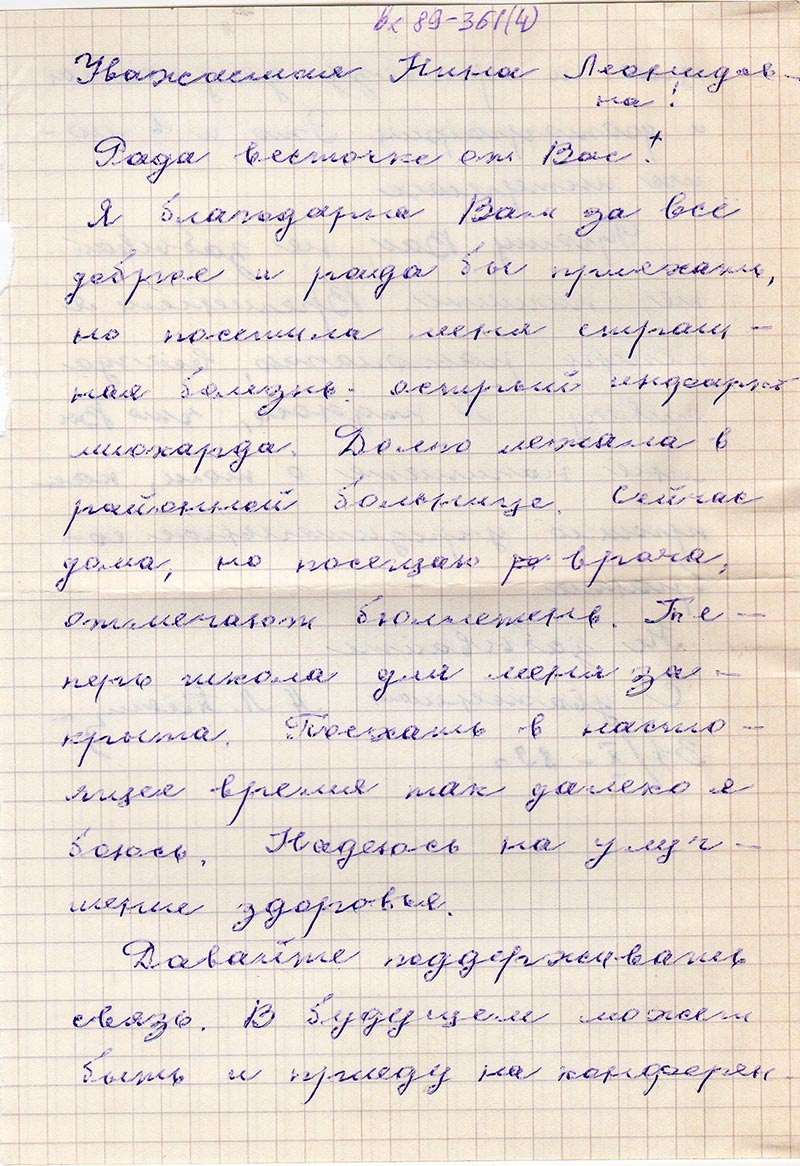 вх 89-361(4)
Уважаемая Нина Леонидов-
на!
Рада весточке от Вас!
Я благодарна Вам за всё
доброе и рада бы приехать,
но посетила меня страш-
ная болезнь: острый инфаркт
миокарда. Долго лежала в
районной больнице. Сейчас
дома, но посещаю врача,
отмечают бюллетень. Те-
перь школа для меня за-
крыта. Поехать в насто-
ящее время так далеко я
боюсь. Надеюсь на улуч-
шение здоровья.
Давайте поддерживать
связь. В будущем может
быть и приеду на конферен-